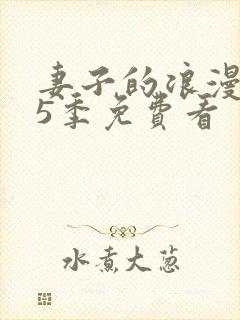 妻子的浪漫
5季免費看
水煮大葱